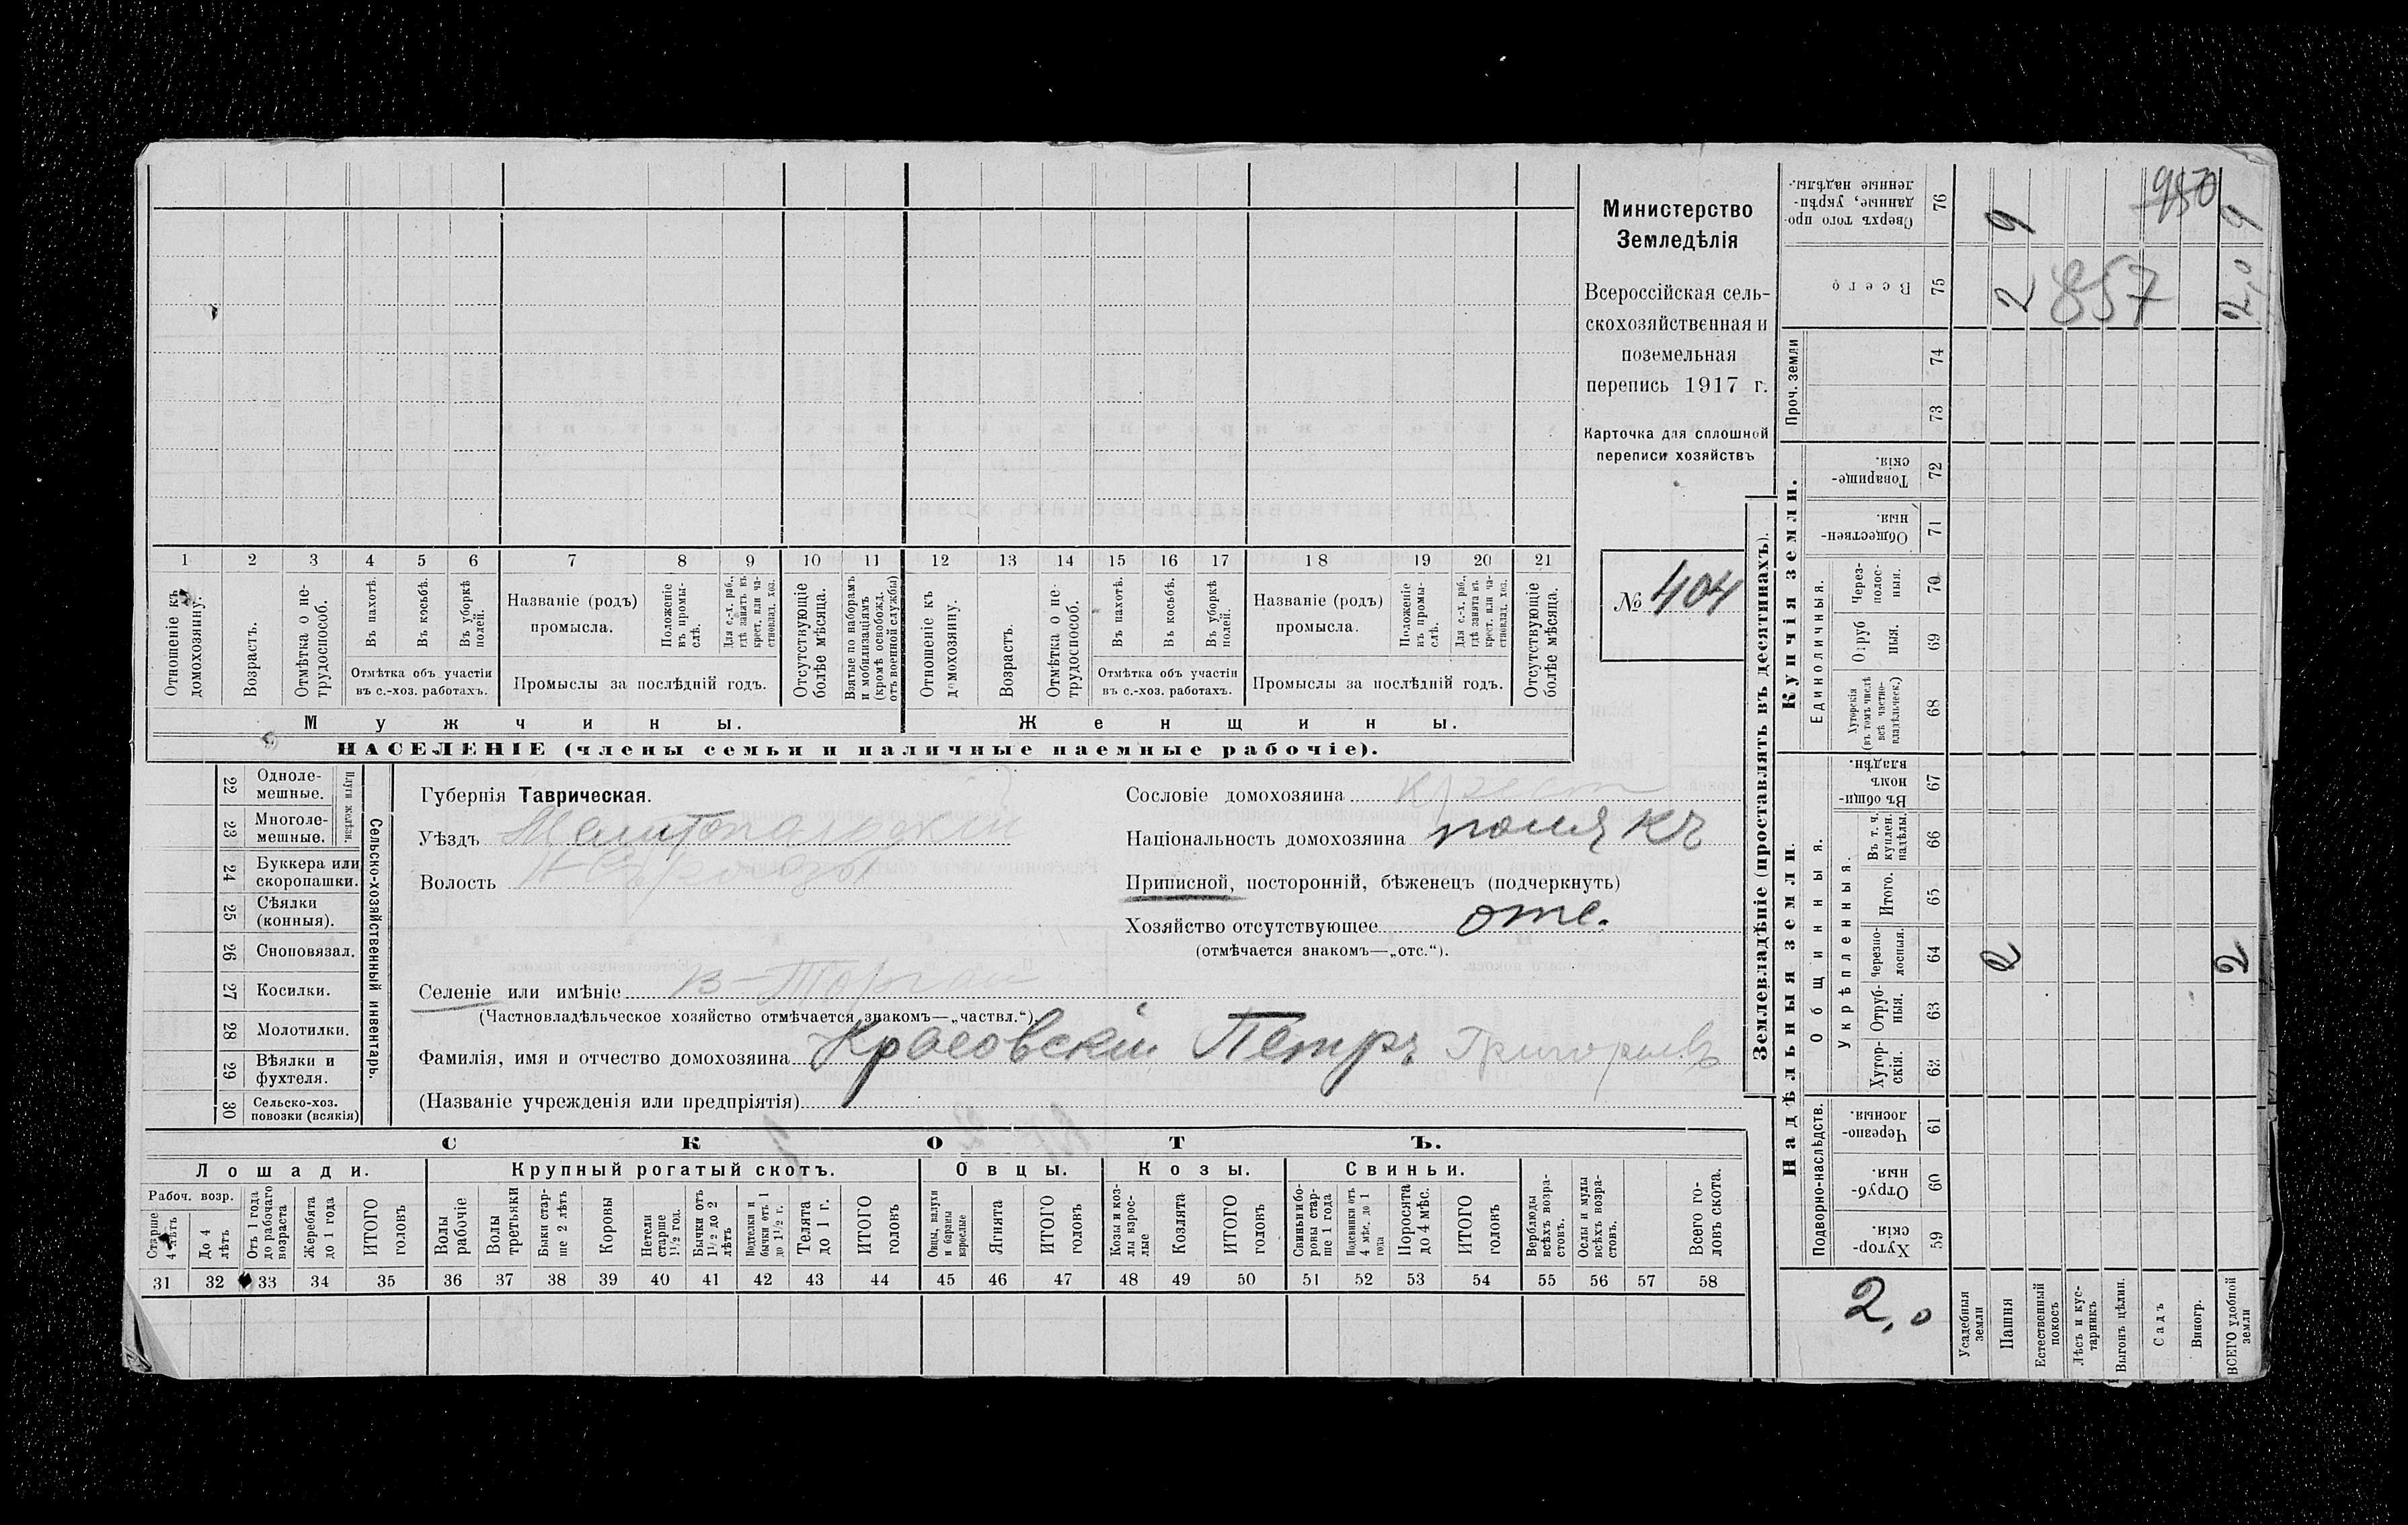 Министерство
Земледѣлія
Всероссійская сель-
скохозяйственная и
поземельная
перепись 1917 г.
Карточка для сплошной
переписи хозяйствъ
№ 404
1 2 3 4 5 6 7 8 9 10 11 12 13 14 15 16 17 18 19 20 21
Отношеніе къ домохозяину.
Возрастъ.
Отмѣтка о не-трудоспособ.
Въ пахотѣ.
Въ косьбѣ.
Въ уборкѣ полей.
Отмѣтка объ участіи
въ с.-хоз. работахъ.
Названіе (родъ)
промысла.
Положеніе въ промы-слѣ.
Для с.-х. раб., гдѣ занятъ въ крест. или ча-стновлад. хоз.
Промыслы за послѣдній годъ.
Отсутствующіе болѣе мѣсяца.
Взятые по наборамъ и мобилизаціямъ (кромѣ освобожд. отъ военной службы)
Отношеніе къ домохозяину.
Возрастъ.
Отмѣтка о не-трудоспособ.
Въ пахотѣ.
Въ косьбѣ.
Въ уборкѣ полей.
Отмѣтка объ участіи
въ с.-хоз. работахъ.
Названіе (родъ)
промысла.
Положеніе въ промы-слѣ.
Для с.-х. раб., гдѣ занята въ крест. или ча-стновлад. хоз.
Промыслы за послѣдній годъ.
Отсутствующіе болѣе мѣсяца.
Мужчины.
Женщины.
НАСЕЛЕНІЕ (члены семьи и наличные наемные рабочіе).
22 Одноле-мешные.
23 Многоле-мешные.
Плуги желѣзн.
24 Буккера или скоропашки.
25 Сѣялки (конныя).
26 Сноповязал.
27 Косилки.
28 Молотилки.
29 Вѣялки и фухтеля.
30 Сельско-хоз. повозки (всякія)
Сельско-хозяйственный инвентарь.
Губернія Таврическая.
Уѣздъ Мелитопольскій
Волость
Селеніе или имѣніе
(Частновладѣльческое хозяйство отмѣчается знакомъ—„частвл.“)
Фамилія, имя и отчество домохозяина Красовскій Петръ Григорьевъ
(Названіе учрежденія или предпріятія)
Сословіе домохозяина крест
Національность домохозяина полякъ
Приписной, посторонній, бѣженецъ (подчеркнуть)
Хозяйство отсутствующее отс.
(отмѣчается знакомъ—„отс.“).
СКОТЪ.
Лошади.
Крупный рогатый скотъ.
Овцы.
Козы.
Свиньи.
Рабоч. возр.
Старше 4 лѣтъ
До 4 лѣтъ
Отъ 1 года до рабочаго возраста
Жеребята до 1 года
ИТОГО головъ
Волы рабочіе
Волы третьяки
Быки стар-ше 2 лѣтъ
Коровы
Нетели старше 1½ год.
Бычки отъ 1½ до 2 лѣтъ
Подтелки и бычки отъ 1 до 1½ г.
Телята до 1 г.
ИТОГО головъ
Овцы, валухи и бараны взрослые
Ягнята
ИТОГО головъ
Козы и коз-лы взрос-лые
Козлята
ИТОГО головъ
Свиньи бо-ровы стар-ше 1 года
Подсвинки отъ 4 мѣс. до 1 года
Поросята до 4 мѣс.
ИТОГО головъ
Верблюды всѣхъ возра-стовъ.
Ослы и мулы всѣхъ возра-стовъ.
Всего го-ловъ скота.
31 32 33 34 35 36 37 38 39 40 41 42 43 44 45 46 47 48 49 50 51 52 53 54 55 56 57 58
Землевладѣніе (проставлять въ десятинахъ).
Надѣльныя земли.
Купчія земли.
Проч. земли
Подворно-наслѣдств.
Общинныя.
Укрѣпленныя.
Единоличныя.
Сверхъ того про-данные, укрѣп-ленные надѣлы. 76
Всего 75
74
73
Товарище-скія. 72
Обществен-ныя. 71
Через-полос-ныя. 70
Отруб-ныя. 69
Хуторскія (въ томъ числѣ всѣ частно-владѣльческ.) 68
Въ общи-номъ владѣн. 67
Въ т. ч. куплен. надѣлы. 66
Итого. 65
Черезпо-лосныя. 64
Отруб-ныя. 63
Хутор-скія. 62
Черезпо-лосныя. 61
Отруб-ныя. 60
Хутор-скія. 59
Усадебныя земли
Пашня
Естественный покосъ
Лѣсъ и кус-тарникъ
Выгонъ цѣлин.
Садъ
Виногр.
ВСЕГО удобной земли
2,0
2
2
2
857
2,0
9
9